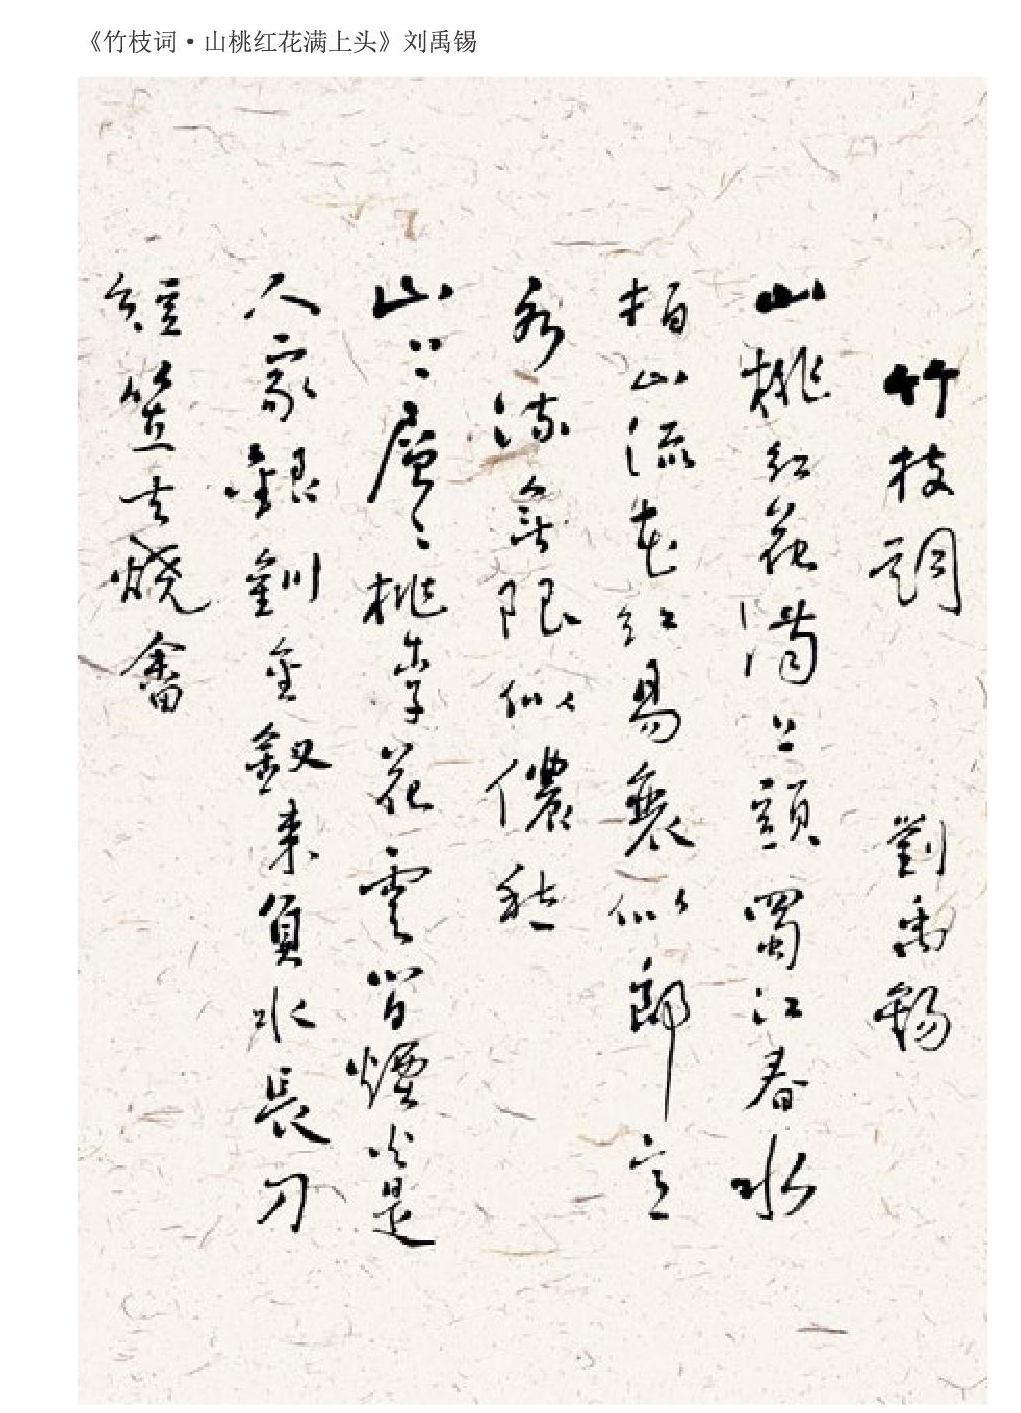 《竹枝词·山桃红花满上头》刘禹锡
竹枝詞 劉禹錫
山桃紅花滿上頭蜀江春水
拍山流花紅易衰似郎意
水流無限似儂愁
山上層〻桃李花雲間煙火是
人家銀釧金釵来負水長刀
短笠去燒畬